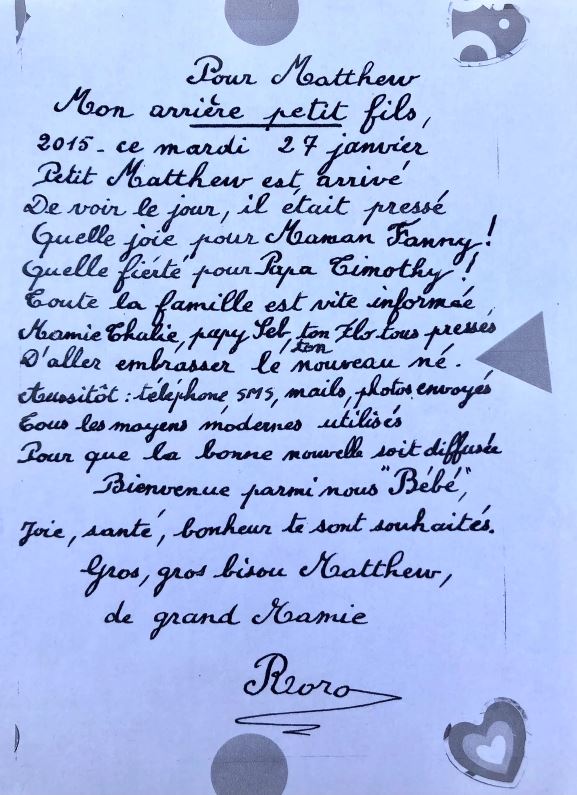 Pour Matthew
Mon arrière petit fils,
2015 - ce mardi 27 janvier
Petit Matthew est arrivé
De voir le jour, il était pressé
Quelle joie pour Maman Fanny !
Quelle fierté pour Papa Timothy !
Toute la famille est vite informée
Mamie Thulie, papy Seb, ton Flo tous pressés
ton
D'aller embrasser le nouveau né.
Aussitôt : téléphone, SMS, mails, photos envoyés
Tous les moyens modernes utilisés
Pour que la bonne nouvelle soit diffusée
Bienvenue parmi nous "Bébé",
Joie, santé, bonheur te sont souhaités.
Gros, gros bisou Matthew,
de grand Mamie
Roro